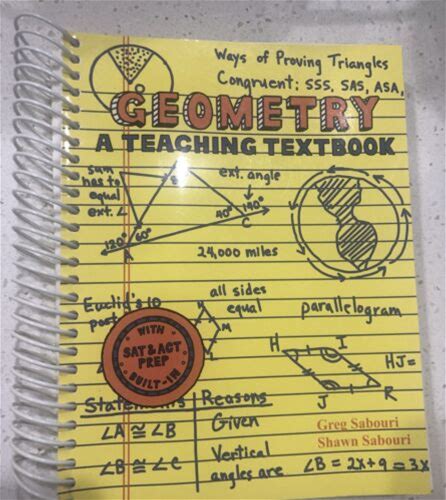 Ways of Proving Triangles
Congruent: SSS, SAS, ASA,
GEOMETRY
A TEACHING TEXTBOOK
sum
has to
equal
ext. ∠
B
ext. angle
40° 140°
C
120° 60°
A
24,000 miles
Euclid's 10
post
all sides
equal
M
parallelogram
WITH
SAT & ACT
PREP
BUILT-IN
H I
HJ=
J R
Statements Reasons
∠A ≅ ∠B Given
∠B ≅ ∠C Vertical
angles are
Greg Sabouri
Shawn Sabouri
∠B = 2x+9 = 3x